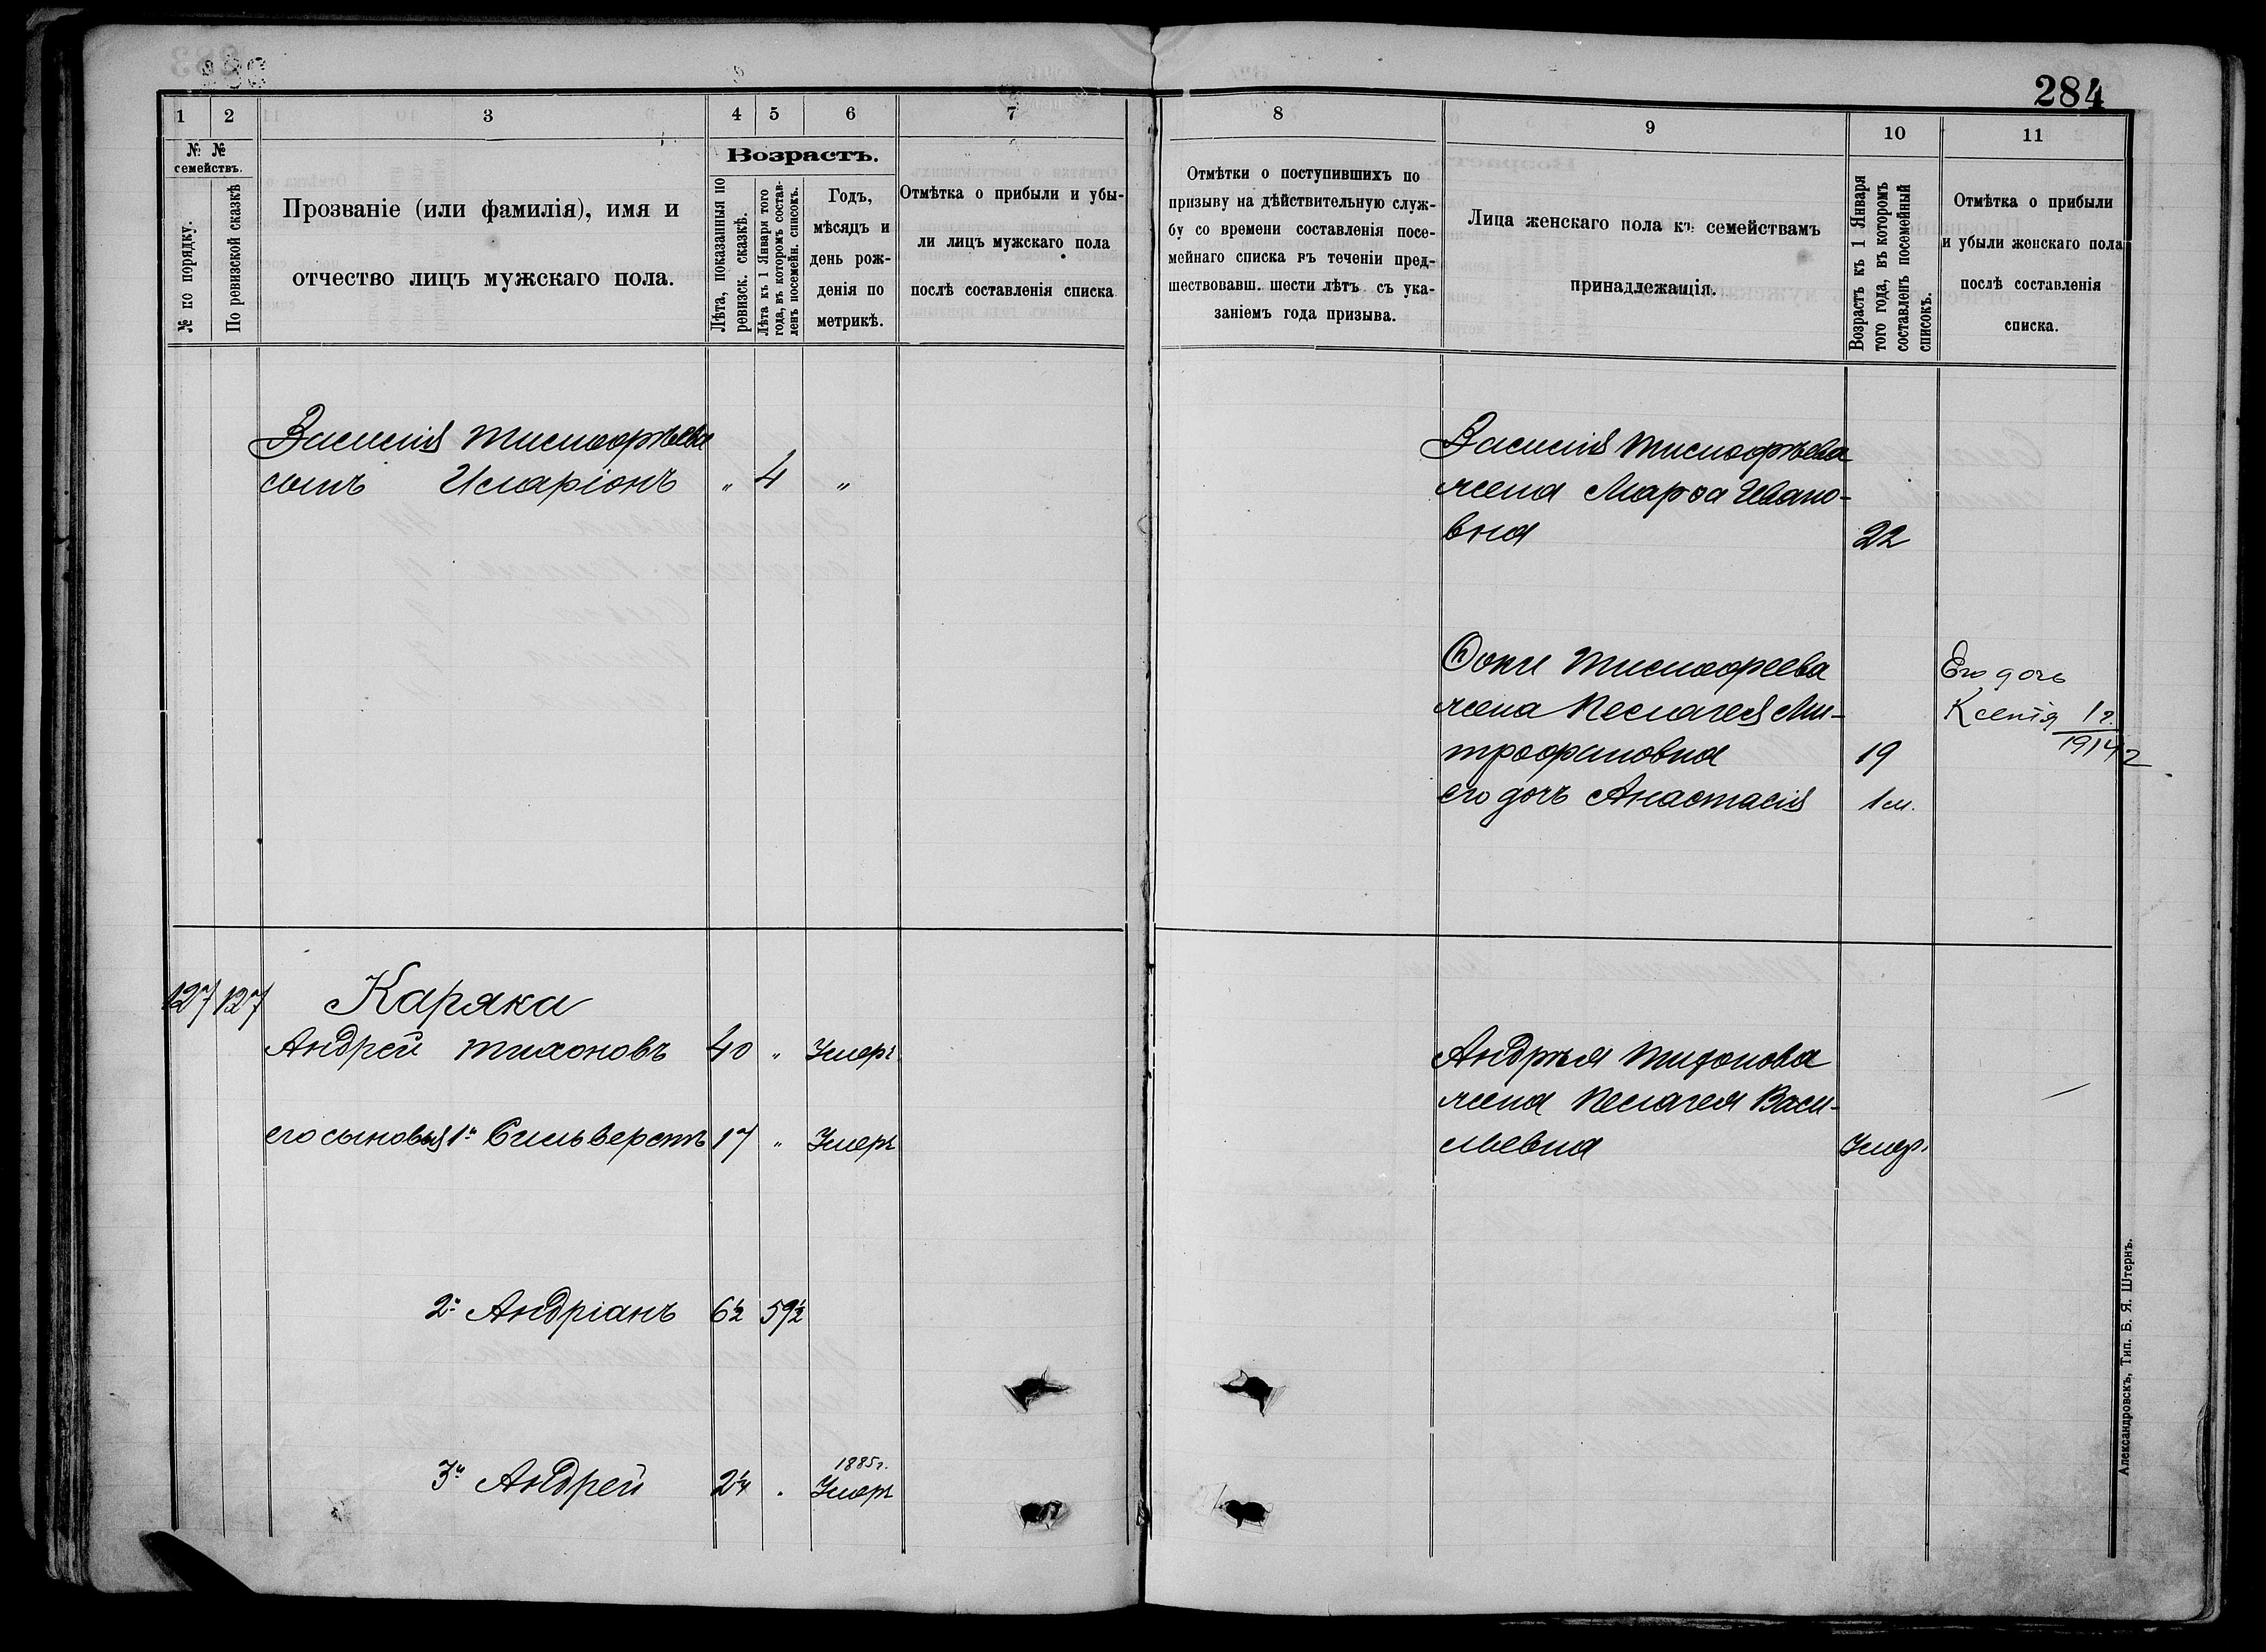 284
1 2 3 4 5 6 7
№ №
семействъ.
№ по порядку.
По ревизской сказкѣ
Прозваніе (или фамилія), имя и
отчество лицъ мужскаго пола.
Возрастъ.
Лѣта, показанныя по
ревизск. сказкѣ.
Лѣта къ 1 Января того
года, въ которомъ состав-
ленъ посемейн. списокъ.
Годъ,
мѣсяцъ и
день рож-
денія по
метрикѣ.
Отмѣтка о прибыли и убы-
ли лицъ мужскаго пола
послѣ составленія списка
Василія Тимоѳѣева
сынъ Иларіонъ „ 4 „
127 127 Каряка
Андрей Тихоновъ 40 „ Умеръ
его сыновья 1й Сильверстъ 17 „ Умеръ
2й Андріанъ 6½ 59½
1885г.
3й Андрей 2¼ . Умеръ
8 9 10 11
Отмѣтки о поступившихъ по
призыву на дѣйствительную служ-
бу со времени составленія посе-
мейнаго списка въ теченіи пред-
шествовавш. шести лѣтъ съ ука-
заніемъ года призыва.
Лица женскаго пола къ семействамъ
принадлежащія.
Возрастъ къ 1 Января
того года, въ которомъ
составленъ посемейный
списокъ.
Отмѣтка о прибыли
и убыли женскаго пола
послѣ составленія
списка.
Василія
жена Марѳа Ивано-
вна 22
Ѳоки
жена Пелагея Ми-
трофановна 19
его дочь Анастасія 1 м.
Его дочь
Ксенія 1 г.
1914 г
Андрѣя Тихонова
жена Пелагея Васи-
льевна Умер.
Александровскъ, Тип. Б. Я. Штернъ.